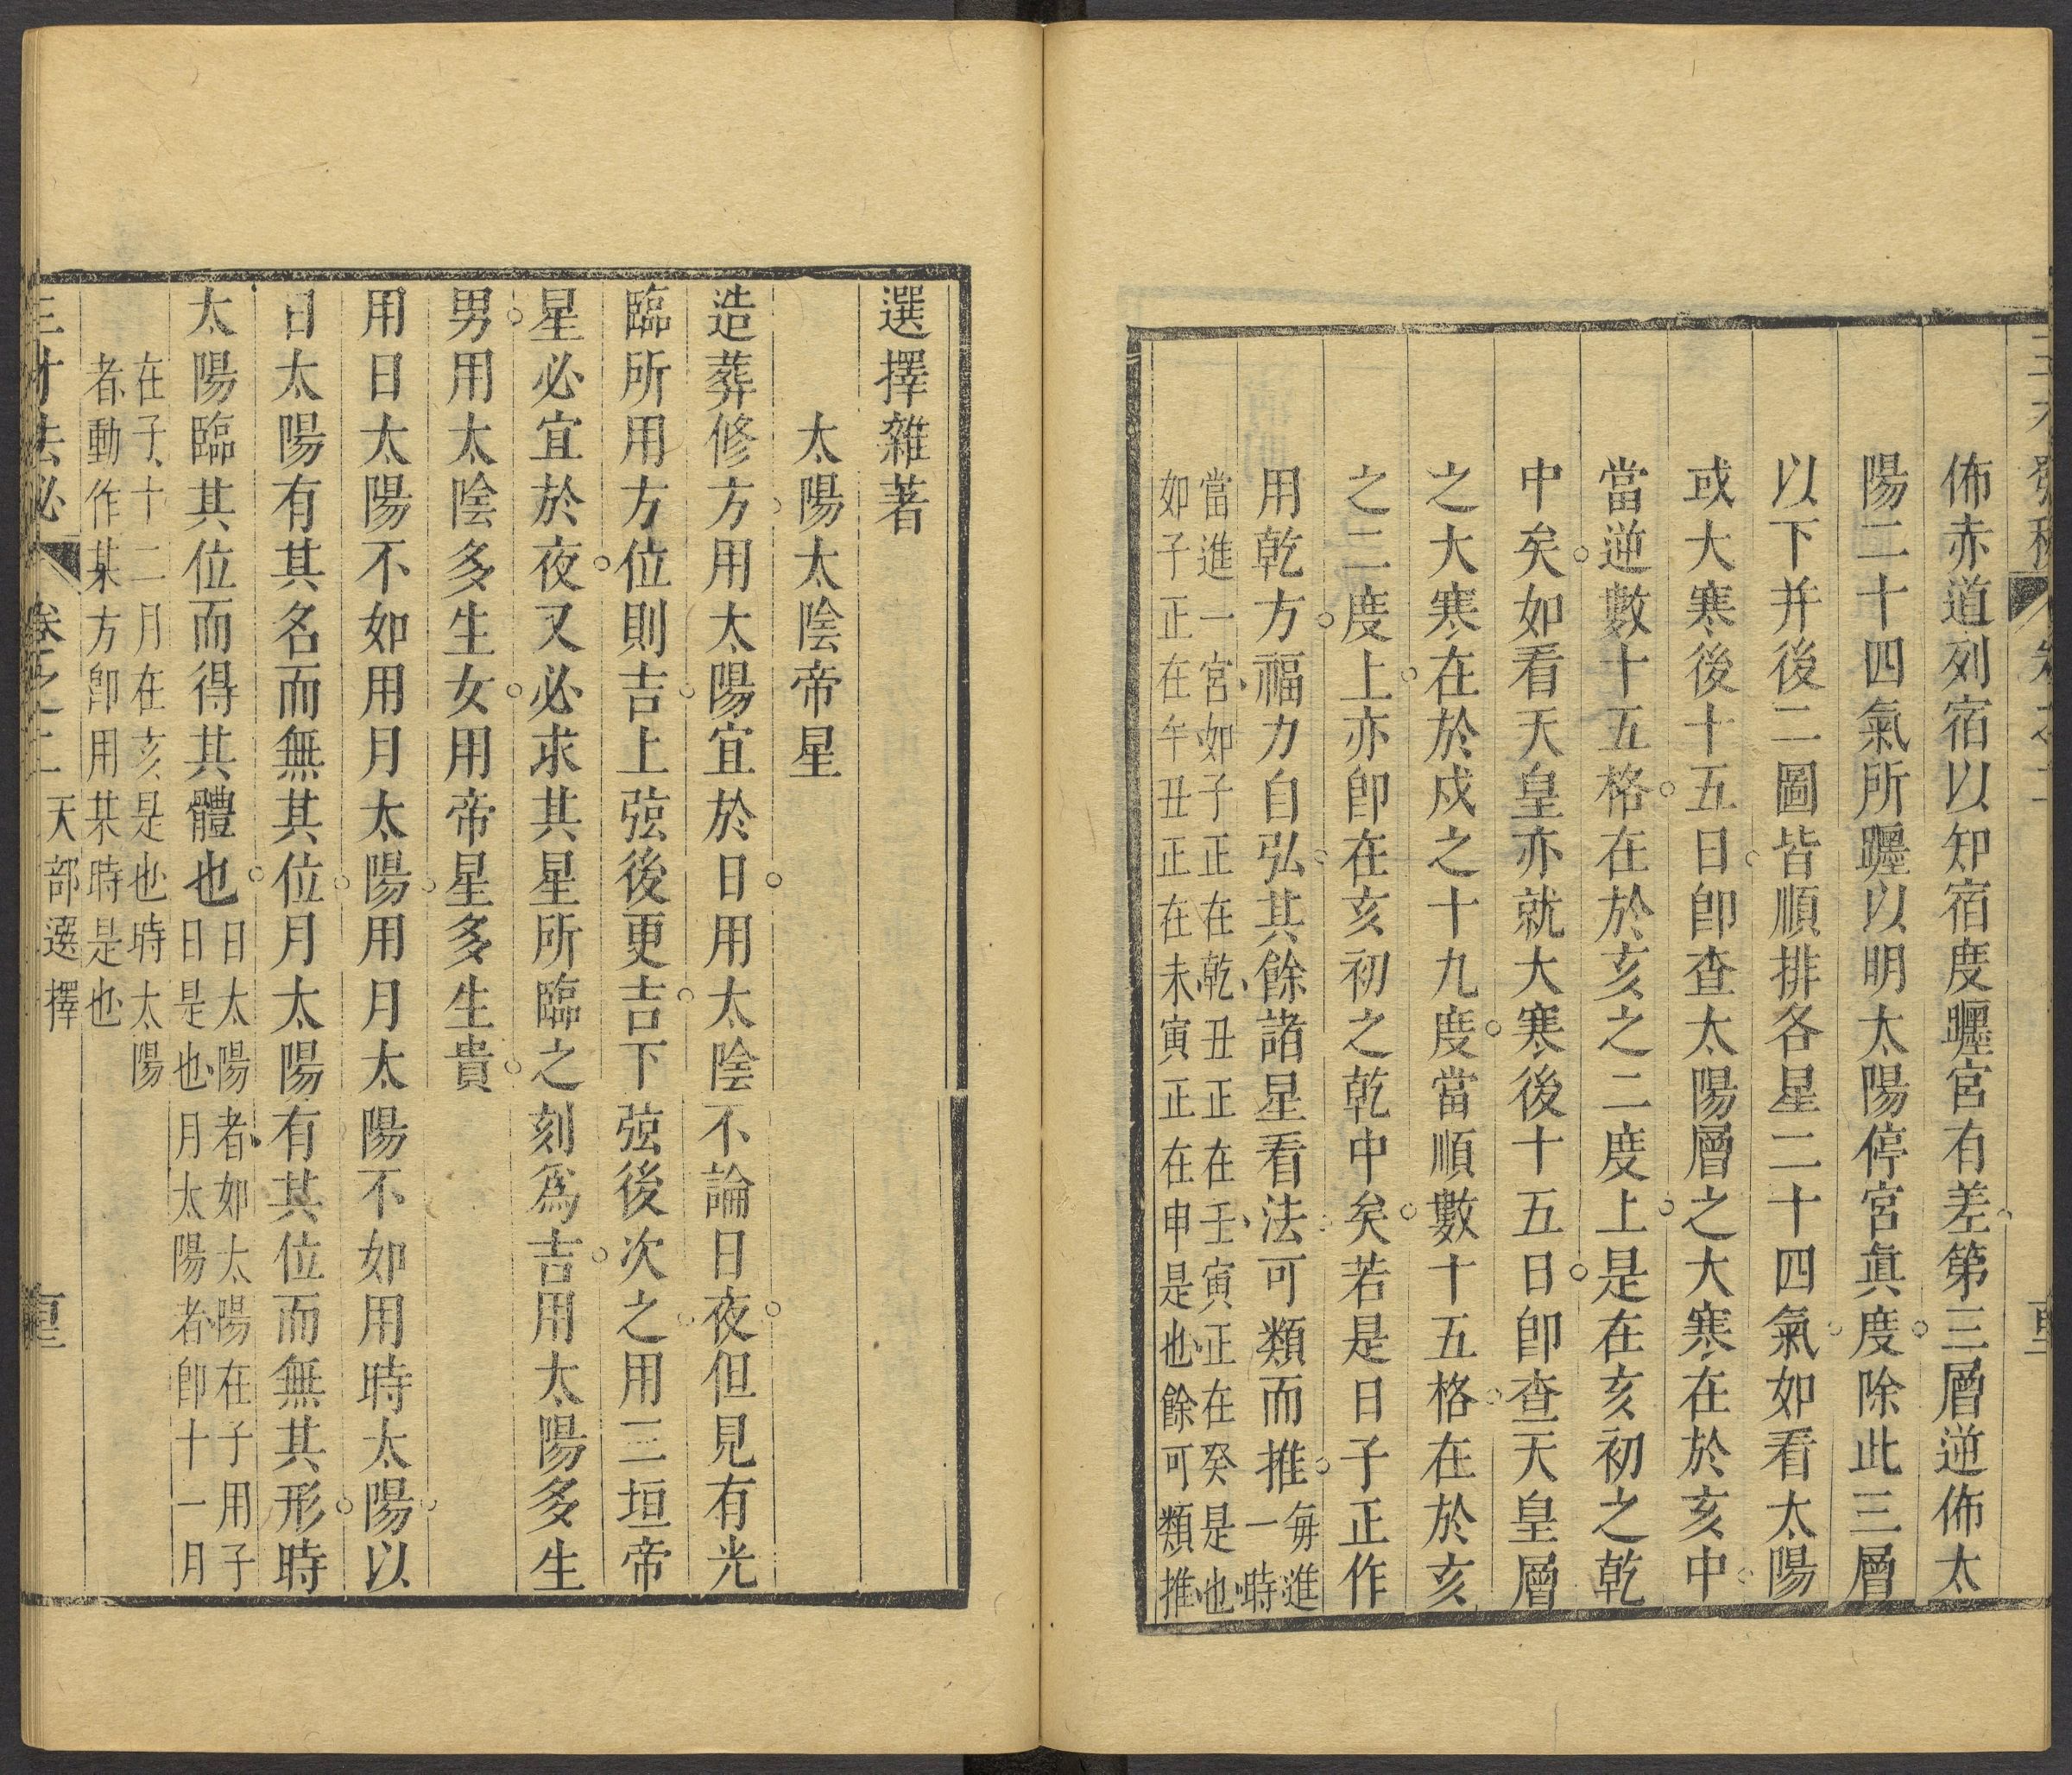 佈赤道列宿以知宿度躔宮有差第三層逆佈太
陽二十四氣所躔以明太陽停宮眞度除此三層
以下幷後二圖皆順排各星二十四氣如看太陽
或大寒後十五日卽查太陽層之大寒在於亥中
當逆數十五格在於亥之二度上是在亥初之乾
中矣如看天皇亦就大寒後十五日卽查天皇層
之大寒在於戍之十九度當順數十五格在於亥
之二度上亦卽在亥初之乾中矣若是日子正作
用乾方福力自弘其餘諸星看法可類而推每進一時
當進一宮如子正在乾丑正在壬寅正在癸是也
如子正在午丑正在未寅正在申是也餘可類推
選擇雜著
太陽太陰帝星
造葬修方用太陽宜於日用太陰不論日夜但見有光
臨所用方位則吉上弦後更吉下弦後次之用三垣帝
星必宜於夜又必求其星所臨之刻爲吉用太陽多生
男用太陰多生女用帝星多生貴
用日太陽不如用月太陽用月太陽不如用時太陽以
日太陽有其名而無其位月太陽有其位而無其形時
太陽臨其位而得其體也日太陽者如太陽在子用子
日是也月太陽者卽十一月
在子十二月在亥是也時太陽
者動作某方卽用某時是也
卷之二 天部選擇